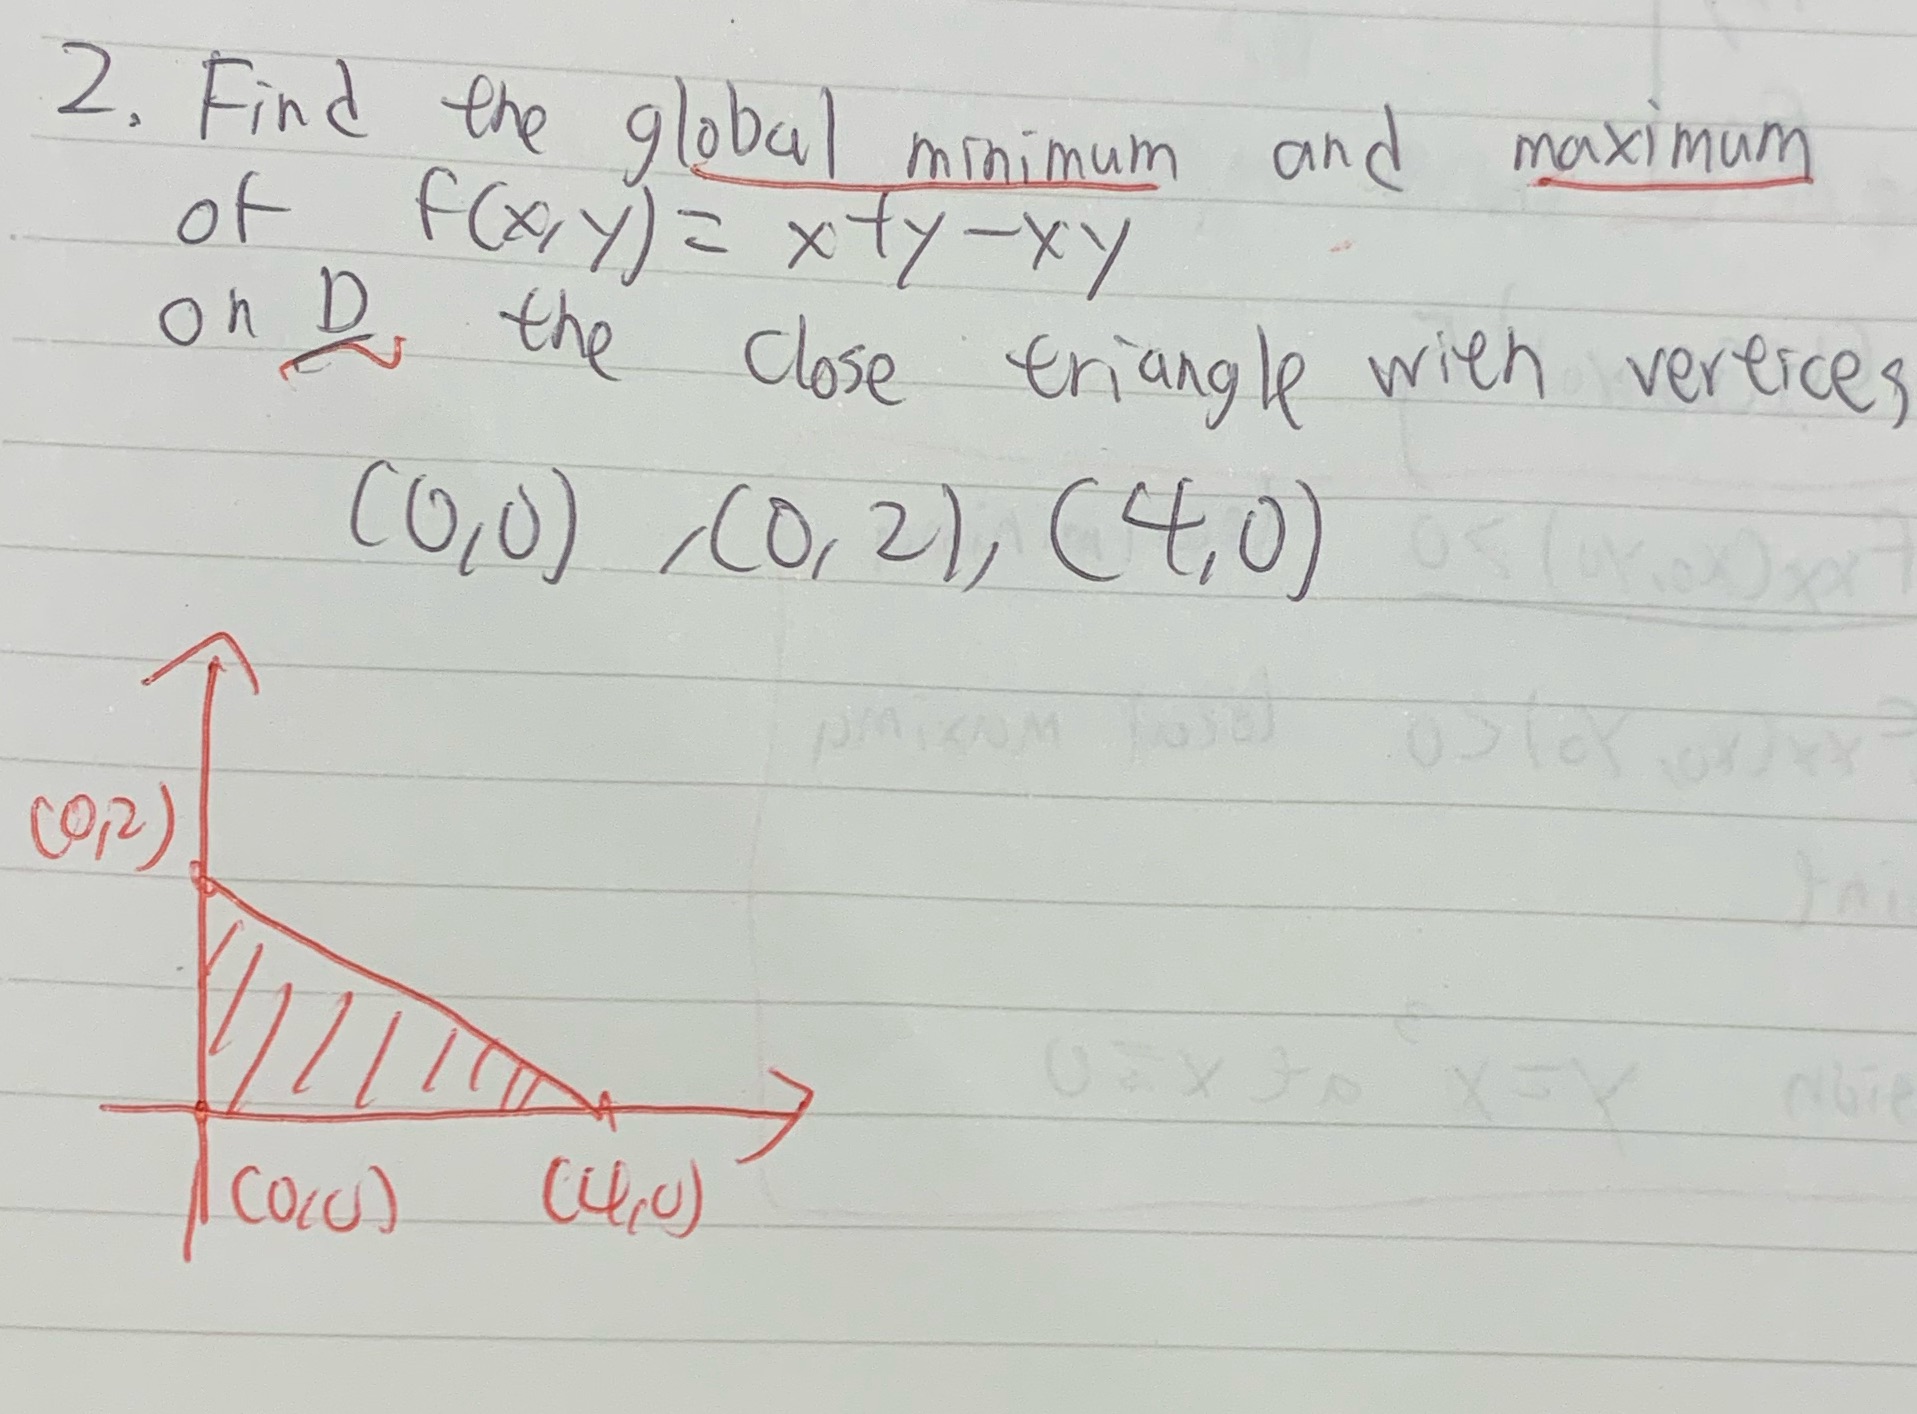 2. Find the global minimum and maximum
of f(x,y) = x+y-xy
on D the close triangle with vertices
(0,0), (0,2), (4,0)
(0,2)
(0,0) (4,0)